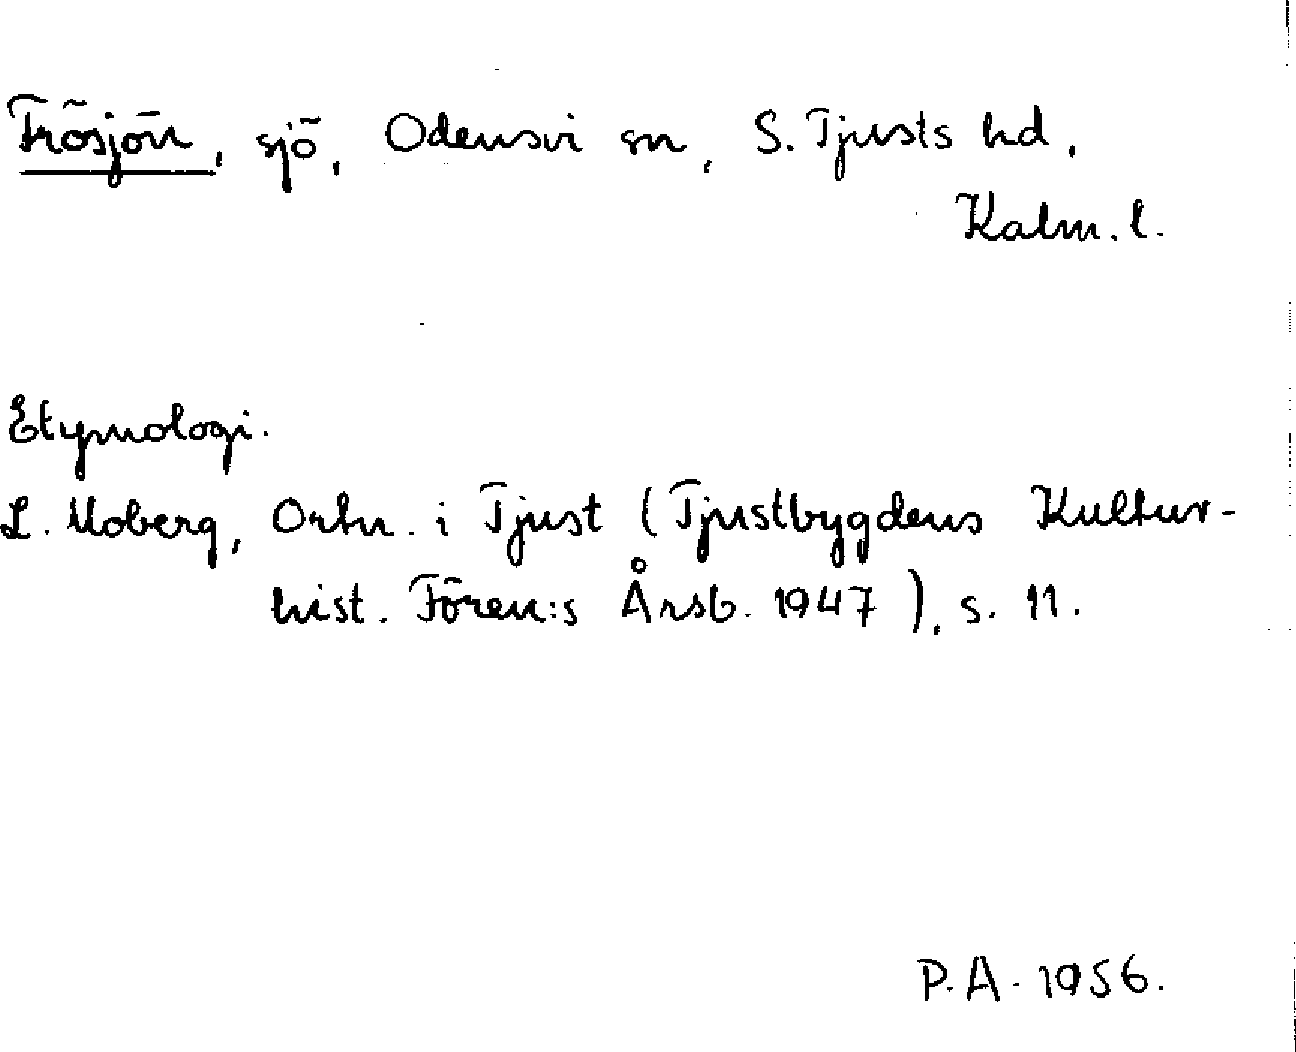 Frösjön, sjö, Odensvi sn, S. Tjusts hd,
Kalm. l.
Etymologi.
L. Moberg, Ortn. i Tjust (Tjustbygdens Kultur-
hist. Fören:s Årsb. 1947), s. 11.
P.A. 1956.